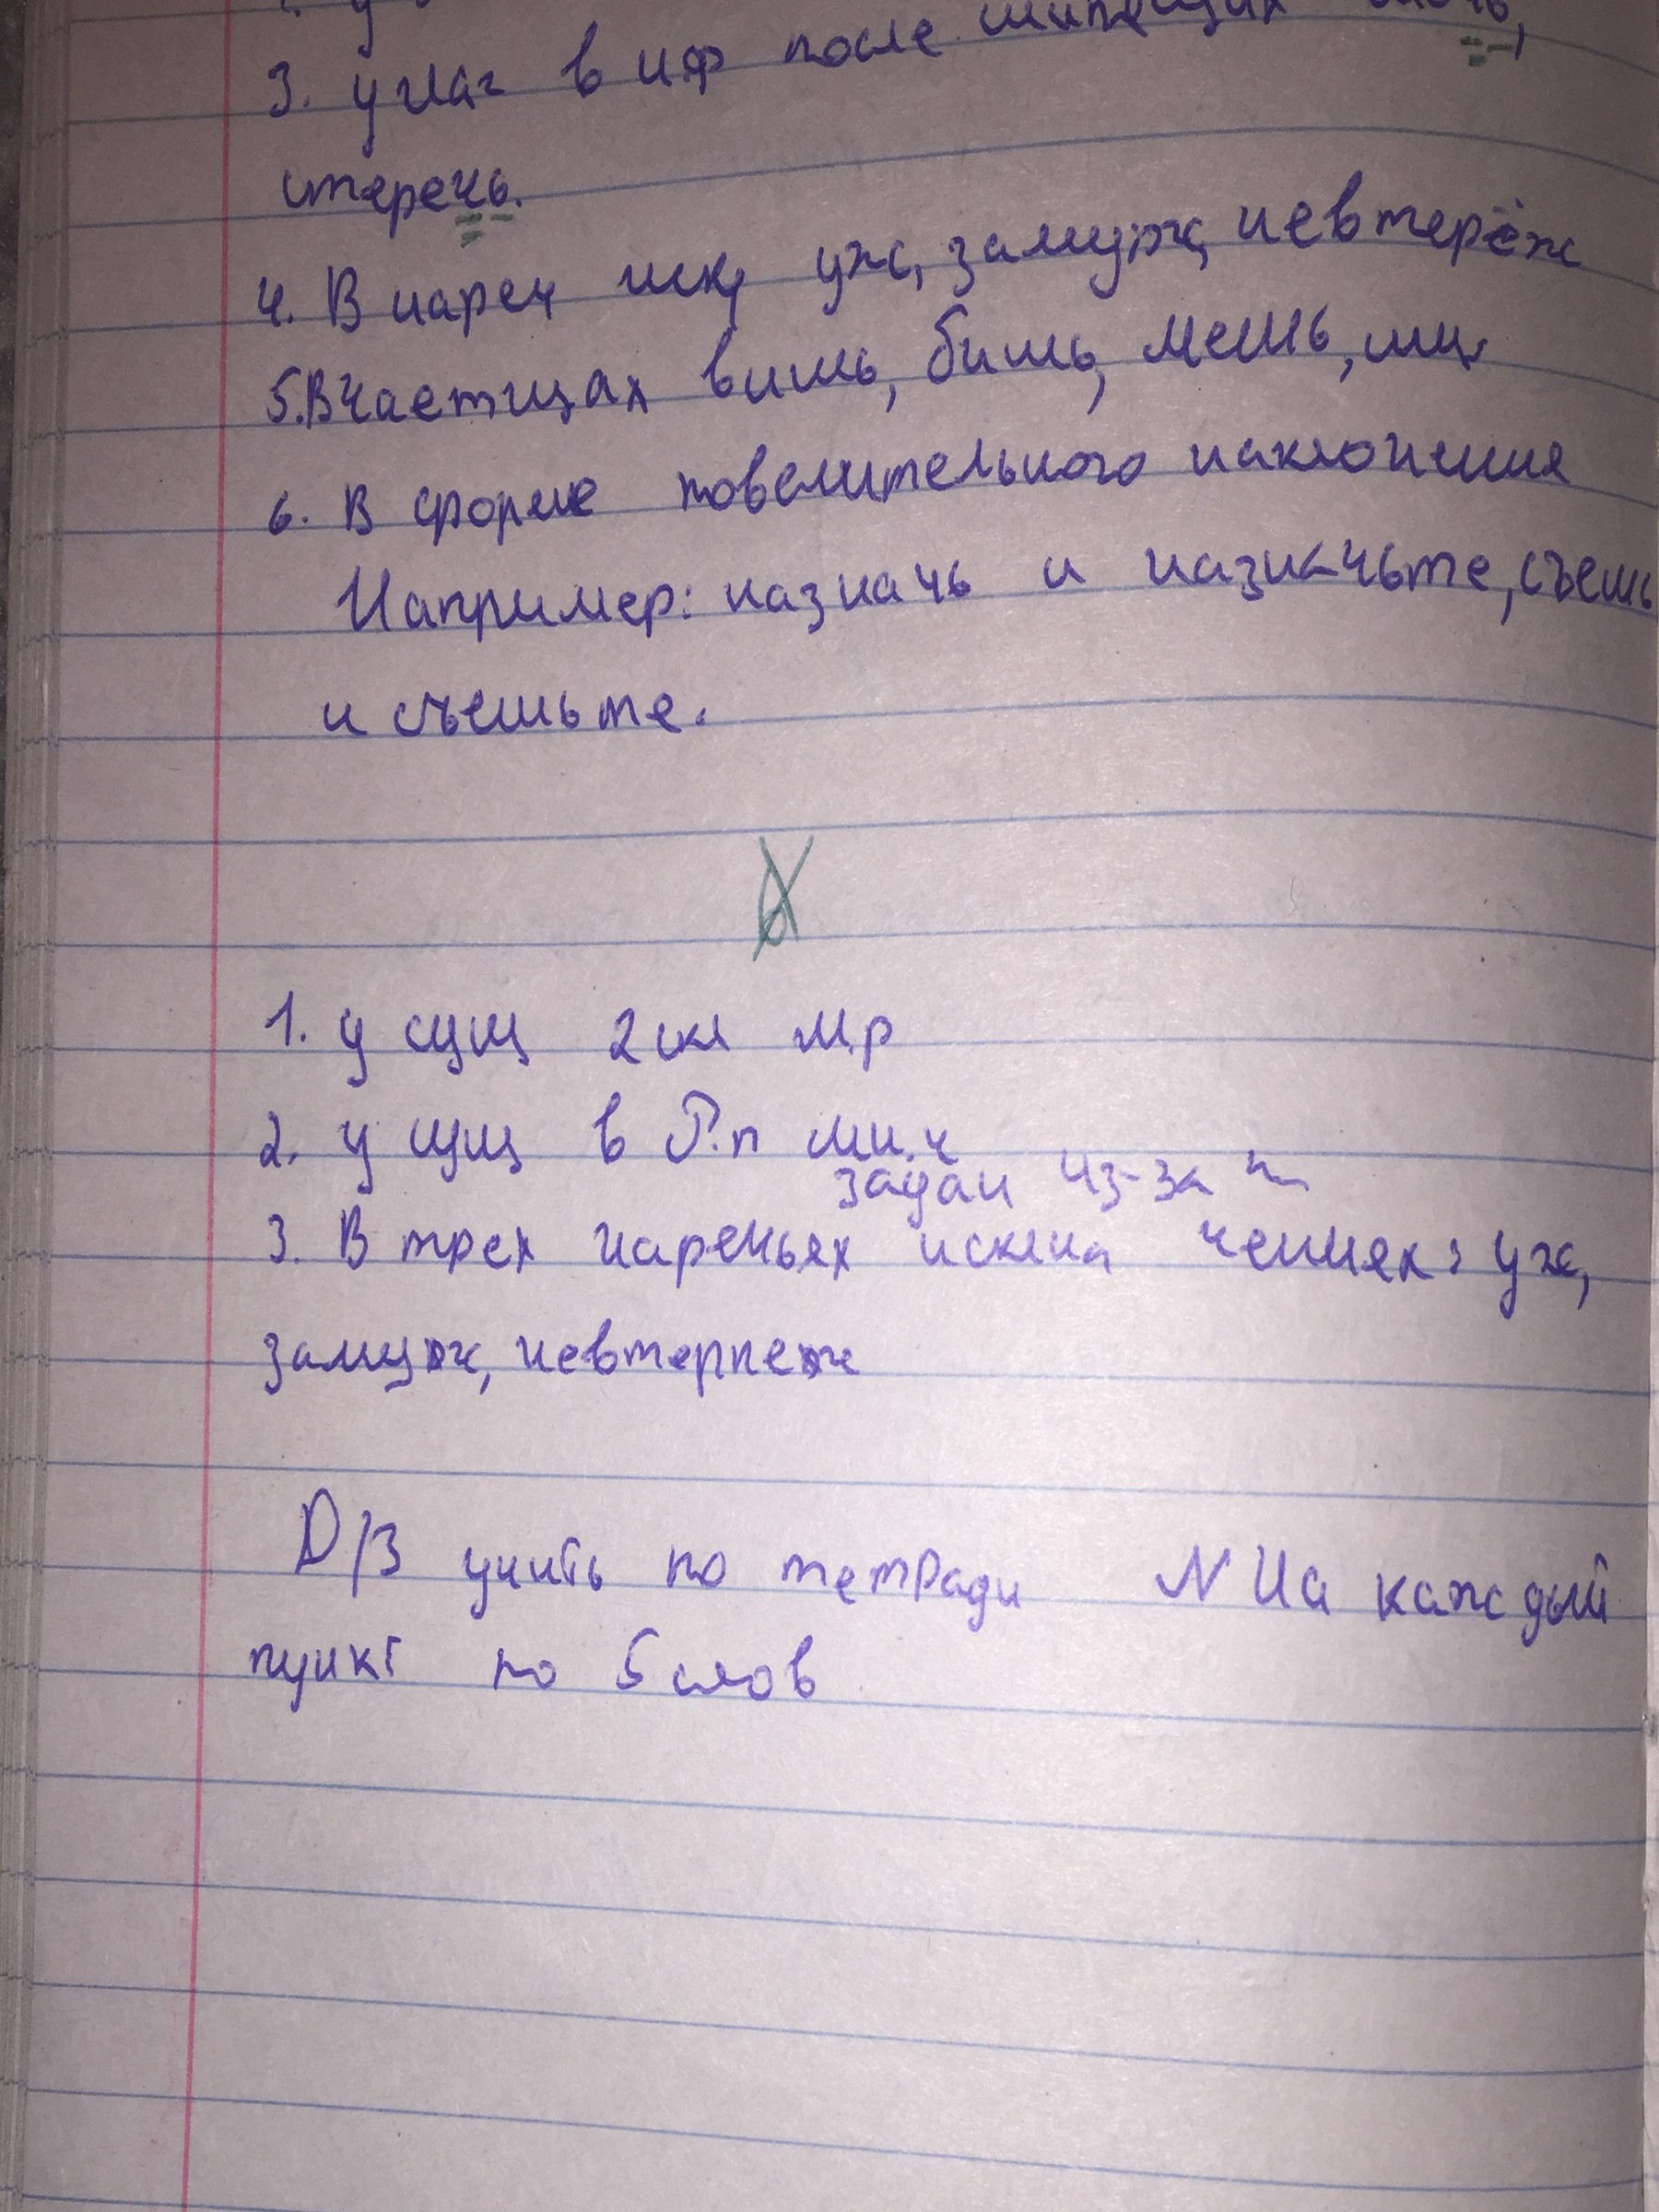 3. у глаг в нф после шипящих
стеречь.
4. В нареч иск уж, замуж, невтерёж
5. В частицах вишь, бишь, мешь, ишь
6. В форме повелительного наклонения
Например: назначь и назначьте, съешь
и съешьте.
1. у сущ 2 скл м.р
2. у сущ в Р.п мн.ч
задач из-за
3. В трех наречьях исклю чениях: уж,
замуж, невтерпеж
D/З учить по тетради N На каждый
пункт по 5 слов